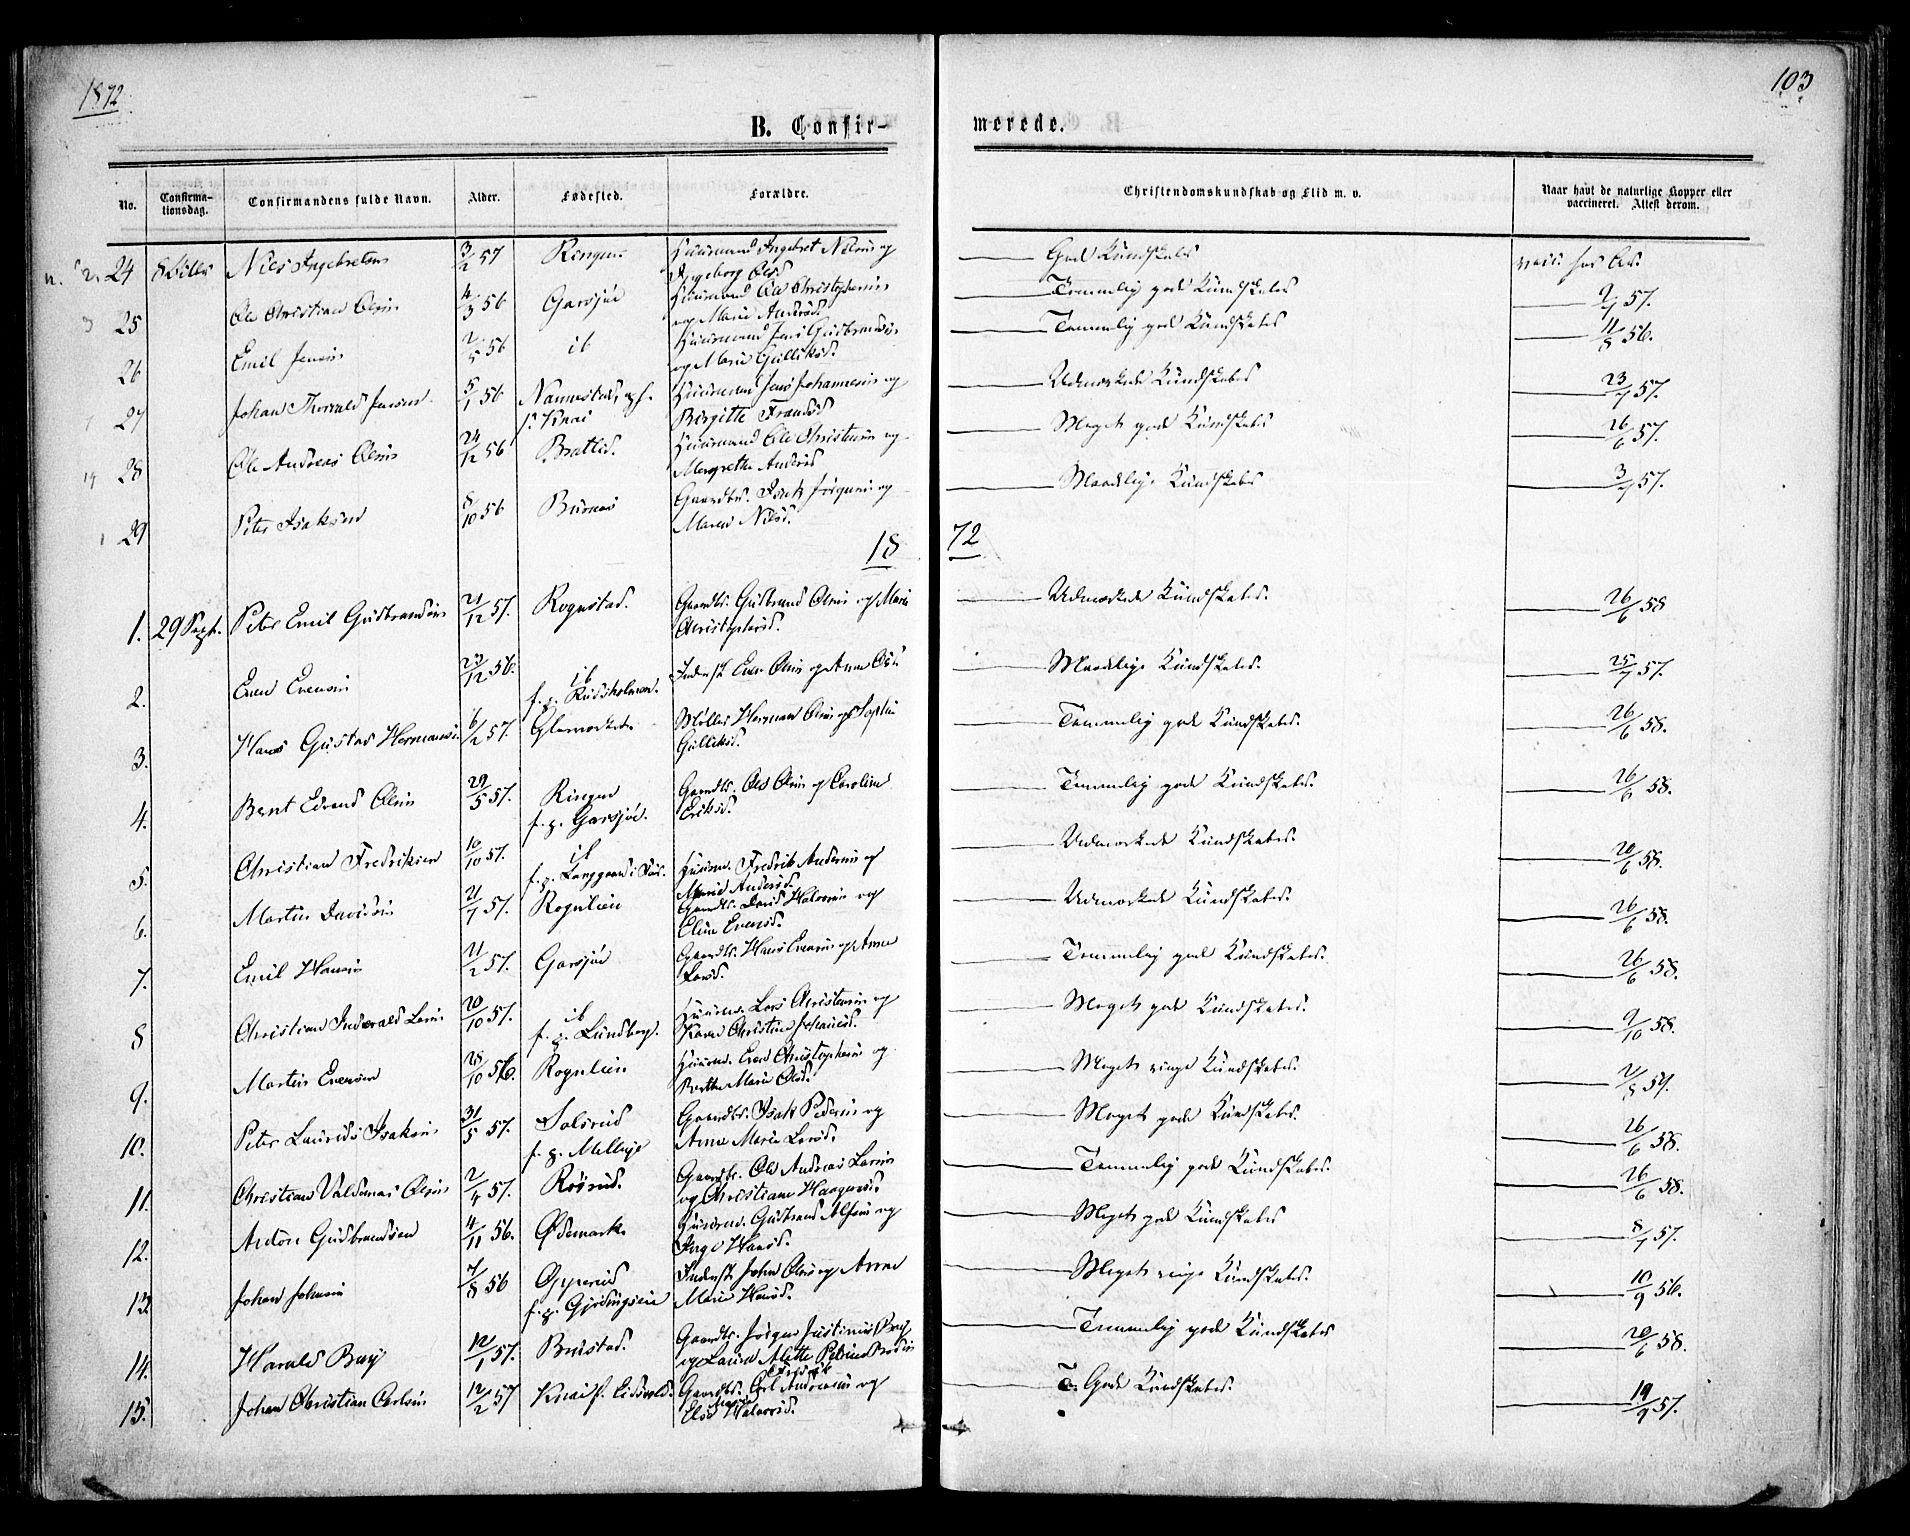 1872
103
B. Confir-
merede.
No.
Confirma-
tionsdag.
Confirmandens fulde Navn.
Alder.
Fødested.
Forældre.
Christendomskundskab og Flid m. v.
Naar havt de naturlige Kopper eller
vaccineret. Attest derom.
24 Nils Ingebretsen 3/2 57 Ringen Huusmand Ingebret Nilsen og
Ingeborg Olsd. God Kundskab
25 Ole Christian Olsen 4/3 56 Garsjøe Huusmand Ole Christophersen
og Marie Andersd. Temmelig gode Kundskaber 9/7 57.
26 Emil Jensen 2/5 56 ib Huusmand Jens Gudbrandsen
og Marie Gulliksd. Temmelig god Kundskaber 11/8 56.
27 Johan Thorvald Jensen 5/1 56 Nannestad, Huusmand Jens Johannesen og
Birgitte Fransd. Udmærkede Kundskaber 23/7 57.
28 Ole Andreas Olsen 24/12 56 Bratlid. Huusmand Ole Christensen og
Margrethe Andersd. Meget gode Kundskaber 26/6 57.
29 Peter Isaksen 8/10 56 Gaardbr. Isak Jørgens. og
Maren Nilsd. Maadelige Kundskaber 3/7 57.
18 72
1. 29 Sept. Peter Emil Gudbrandsen 21/12 57. Rognstad. Gaardbr. Gudbrand Olsen og Marie
Christophersd. Udmærkede Kundskaber. 26/6 58
2. Even Evensen 23/12 56. ib
f. p. Rudsholmen. Inderst Even Olsen og Anne Olsd. Maadelige Kundskaber. 25/7 57.
3. Hans Gustav Hermansen 6/2 57. Møller Herman Olsen og Sophie
Gulliksd. Temmelig gode Kundskaber. 26/6 58.
4. Bent Edvard Olsen 29/5 57. Ringen
f. p. Garsjøe. Gaardbr. Ole Olsen og Caroline
Eriksd. Temmelig gode Kundskaber. 26/6 58.
5. Christian Fredriksen 10/10 57. ib
Huusm. Fredrik Andersen og
Marie Andersd. Udmærkede Kundskaber. 20/6 58.
6. Martin Davidsen 21/7 57. Rognlien Gaardbr. David Halvorsen og
Eline Evensd. Udmærkede Kundskaber. 26/6 58.
7. Emil Hansen 21/2 57. Garsjøe Gaardbr. Hans Evensen og Anne
Larsd. Temmelig gode Kundskaber. 26/6 58.
8 Christian Larsen 20/10 57. ib
f. p. Lundberg. Huusm. Lars Christensen og
Karen Christine Johansd. Meget gode Kundskaber. 9/10 58.
9. Martin Evensen 28/10 56. Rognlien Huusm. Even Christophersen og
Berthe Marie Olsd. Meget ringe Kundskaber. 2/8 57.
10. Peter Laurids Isaksen 31/5 57. Solsrud
f. p. Gaardbr. Isak Pedersen og
Anne Marie Larsd. Meget gode Kundskaber. 26/6 58.
11. Christian Valdemar Olsen 2/4 57. Røsrud. Gaardbr. Ole Andreas Larsen
og Christiane Haagensd. Temmelig gode Kundskaber. 26/6 58.
12. Anton Gudbrandsen 4/11 56. Ødemark Huusm. Gudbrand Alfsen og
Inge Hansd. Meget gode Kundskaber 8/7 57.
13. Johan Johnsen 7/8 56 Opperud
f. p. Inderst John Olsen og Anne
Marie Hansd. Meget ringe Kundskaber. 10/9 56.
14. Harald Bay 12/1 57. Brustad. Gaardbr. Jørgen Justinus Bay
og Laura Alette Petrine Temmelig gode Kundskaber 20/6 58.
15. Johan Christian Carlsen 12/2 57 Knai f. Eidsvold. Gaardbr. Carl Andersen og
Else Marie Halvorsd. T. Gode Kundskaber. 19/9 57.